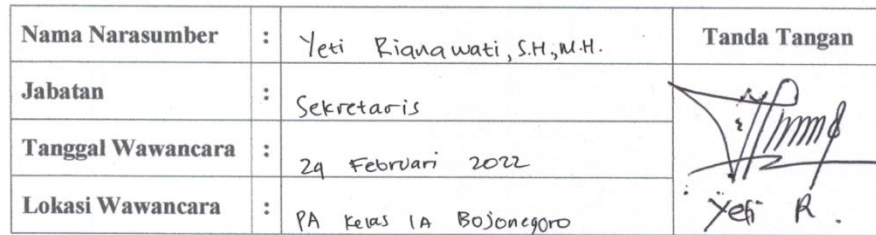 Nama Narasumber : Yeti Rianawati, S.H., M.H. Tanda Tangan
Jabatan : Sekretaris
Tanggal Wawancara : 24 Februari 2022
Lokasi Wawancara : PA Kelas 1A Bojonegoro
Yeti R.